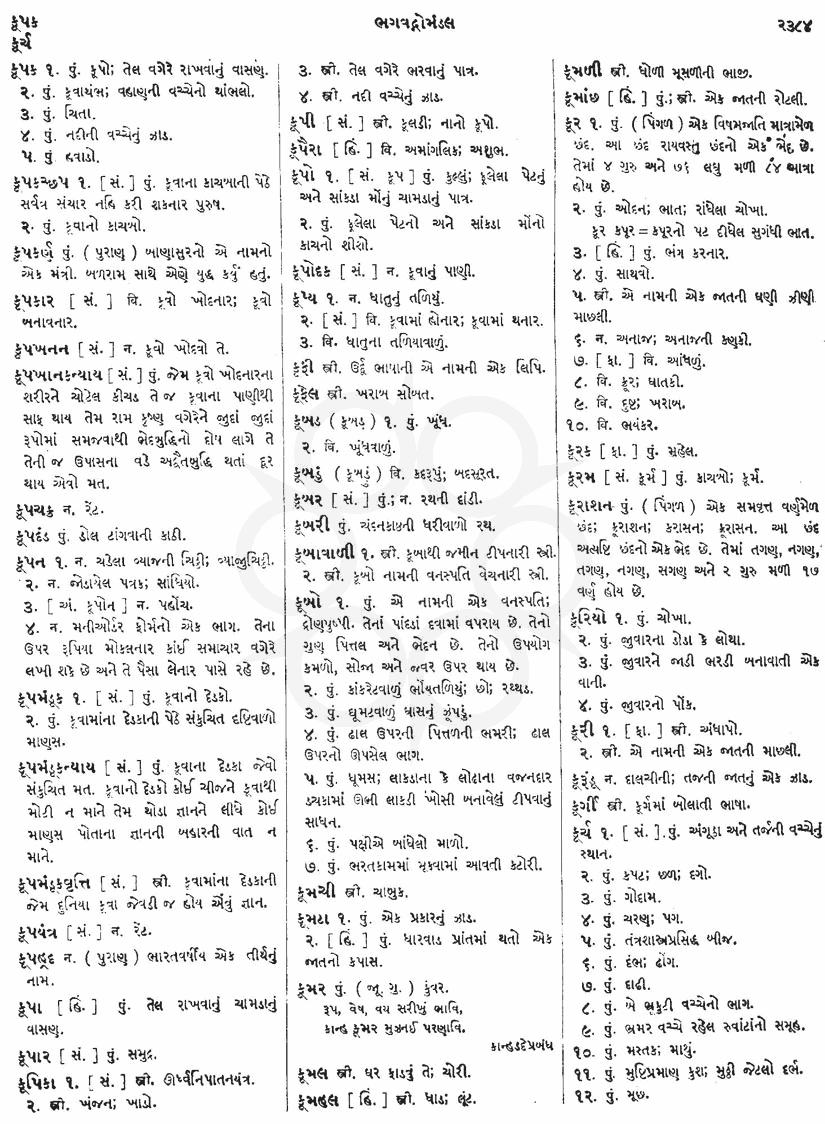 કૂપક
કૂર્ચ
ભગવદ્ગોમંડલ
૨૩૮૪
કૂપક ૧. પું. કૂપો; તેલ વગેરે રાખવાનું વાસણ.
૨. પું. કૂવાથંભ; વહાણની વચ્ચેનો થાંભલો.
૩. પું. ચિતા.
૪. પું. નદીની વચ્ચેનું ઝાડ.
૫. પું. હવાડો.
કૂપકચ્છપ ૧. [ સં. ] પું. કૂવાના કાચબાની પેઠે
સર્વત્ર સંચાર નહિ કરી શકનાર પુરુષ.
૨. પું. કૂવાનો કાચબો.
કૂપકર્ણ પું. ( પુરાણ ) બાણાસુરનો એ નામનો
એક મંત્રી. બળરામ સાથે એણે યુદ્ધ કર્યું હતું.
કૂપકાર [ સં. ] વિ. કૂવો ખોદનાર; કૂવો
બનાવનાર.
કૂપખનન [ સં. ] ન. કૂવો ખોદવો તે.
કૂપખાનકન્યાય [ સં. ] પું. જેમ કૂવો ખોદનારના
શરીરને ચોટેલ કીચડ તે જ કૂવાના પાણીથી
સાફ થાય તેમ રામ કૃષ્ણ વગેરેને જુદાં જુદાં
રૂપોમાં સમજવાથી ભેદબુદ્ધિનો દોષ લાગે તે
તેની જ ઉપાસના વડે અદ્વૈતબુદ્ધિ થતાં દૂર
થાય એવો મત.
કૂપચક્ર ન. રેંટ.
કૂપદંડ પું. ડોલ ટાંગવાની કાઠી.
કૂપન ૧. ન. ચડેલા વ્યાજની ચિઠ્ઠી; વ્યાજુચિઠ્ઠી.
૨. ન. જોડાયેલ પત્રક; સાંધિયો.
૩. [ અં. કૂપોન ] ન. પહોંચ.
૪. ન. મનીઑર્ડર ફોર્મનો એક ભાગ. તેના
ઉપર રૂપિયા મોકલનાર કાંઈ સમાચાર વગેરે
લખી શકે છે અને તે પૈસા લેનાર પાસે રહે છે.
કૂપમંડૂક ૧. [ સં. ] પું. કૂવાનો દેડકો.
૨. પું. કૂવામાંના દેડકાની પેઠે સંકુચિત દૃષ્ટિવાળો
માણસ.
કૂપમંડૂકન્યાય [ સં. ] પું. કૂવાના દેડકા જેવો
સંકુચિત મત. કૂવાનો દેડકો કોઈ ચીજને કૂવાથી
મોટી ન માને તેમ થોડા જ્ઞાનને લીધે કોઈ
માણસ પોતાના જ્ઞાનની બહારની વાત ન
માને.
કૂપમંડૂકવૃત્તિ [ સં. ] સ્ત્રી. કૂવામાંના દેડકાની
જેમ દુનિયા કૂવા જેવડી જ હોય એવું જ્ઞાન.
કૂપયંત્ર [ સં. ] ન. રેંટ.
કૂપહ્રદ ન. ( પુરાણ ) ભારતવર્ષીય એક તીર્થનું
નામ.
કૂપા [ હિં. ] પું. તેલ રાખવાનું ચામડાનું
વાસણ.
કૂપાર [ સં. ] પું. સમુદ્ર.
કૂપિકા ૧. [ સં. ] સ્ત્રી. ઊર્ધ્વનિપાતનયંત્ર.
૨. સ્ત્રી. ખંજન; ખાડો.
૩. સ્ત્રી. તેલ વગેરે ભરવાનું પાત્ર.
૪. સ્ત્રી. નદી વચ્ચેનું ઝાડ.
કૂપી [ સં. ] સ્ત્રી. કૂલડી; નાનો કૂપો.
કૂપૈરા [ હિં. ] વિ. અમાંગલિક; અશુભ.
કૂપો ૧. [ સં. કૂપ ] પું. કુલ્લું; ફૂલેલા પેટનું
અને સાંકડા મોંનું ચામડાનું પાત્ર.
૨. પું. ફૂલેલા પેટનો અને સાંકડા મોંનો
કાચનો શીશો.
કૂપોદક [ સં. ] ન. કૂવાનું પાણી.
કૂપ્ય ૧. ન. ધાતુનું તળિયું.
૨. [ સં. ] વિ. કૂવામાં હોનાર; કૂવામાં થનાર.
૩. વિ. ધાતુના તળિયાવાળું.
કૂફી સ્ત્રી. ઉર્દૂ ભાષાની એ નામની એક લિપિ.
કૂફેલ સ્ત્રી. ખરાબ સોબત.
કૂબડ ( કૂબડ ) ૧. પું. ખૂંધ.
૨. વિ. ખૂંધવાળું.
કૂબડું ( કૂબડું ) વિ. કદરૂપું; બદસૂરત.
કૂબર [ સં. ] પું.; ન. રથની દાંડી.
કૂબરી પું. ચંદનકાષ્ઠની ધરીવાળો રથ.
કૂબાવાળી ૧. સ્ત્રી. કૂબાથી જમીન ટીપનારી સ્ત્રી.
૨. સ્ત્રી. કૂબો નામની વનસ્પતિ વેચનારી સ્ત્રી.
કૂબો ૧. પું. એ નામની એક વનસ્પતિ;
દ્રોણપુષ્પી. તેનાં પાંદડાં દવામાં વપરાય છે. તેનો
ગુણ પિત્તલ અને ભેદન છે. તેનો ઉપયોગ
કમળો, સોજા અને જ્વર ઉપર થાય છે.
૨. પું. કાંકરેટવાળું ભોંયતળિયું; છો; રથ્થડ.
૩. પું. ઘૂમટવાળું ઘાસનું ઝૂંપડું.
૪. પું. ઢાલ ઉપરની પિત્તળની ભમરી; ઢાલ
ઉપરનો ઊપસેલ ભાગ.
૫. પું. ધૂમસ; લાકડાના કે લોઢાના વજનદાર
ડચકામાં ઊભી લાકડી ખોસી બનાવેલું ટીપવાનું
સાધન.
૬. પું. પક્ષીએ બાંધેલો માળો.
૭. પું. ભરતકામમાં મૂકવામાં આવતી કટોરી.
કૂમચી સ્ત્રી. ચાબુક.
કૂમટા ૧. પું. એક પ્રકારનું ઝાડ.
૨. [ હિં. ] પું. ધારવાડ પ્રાંતમાં થતો એક
જાતનો કપાસ.
કૂમર પું. ( જૂ. ગુ. ) કુંવર.
રૂપ, વેષ, વય સરીખું ભાવિ,
કાન્હ કૂમર મુઝનઈ પરણાવિ.
કાન્હડદેપ્રબંધ
કૂમલ સ્ત્રી. ઘર ફાડવું તે; ચોરી.
કૂમહુલ [ હિં. ] સ્ત્રી. ધાડ; લૂંટ.
કૂમળી સ્ત્રી. ધોળી મૂસળીની ભાજી.
કૂમાંછ [ હિં. ] પું.; સ્ત્રી. એક જાતની રોટલી.
કૂર ૧. પું. ( પિંગળ ) એક વિષમજાતિ માત્રામેળ
છંદ. આ છંદ રાયવસ્તુ છંદનો એક ભેદ છે.
તેમાં ૪ ગુરુ અને ૭૬ લઘુ મળી ૮૪ માત્રા
હોય છે.
૨. પું. ઓદન; ભાત; રાંધેલા ચોખા.
કૂર કપૂર = કપૂરનો પટ દીધેલ સુગંધી ભાત.
૩. [ હિં. ] પું. ભંગ કરનાર.
૪. પું. સાથવો.
૫. સ્ત્રી. એ નામની એક જાતની ઘણી ઝીણી
માછલી.
૬. ન. અનાજ; અનાજની કણુકી.
૭. [ ફા. ] વિ. આંધળું.
૮. વિ. ક્રૂર; ઘાતકી.
૯. વિ. દુષ્ટ; ખરાબ.
૧૦. વિ. ભયંકર.
કૂરક [ ફા. ] પું. મહેલ.
કૂરમ [ સં. કૂર્મ ] પું. કાચબો; કૂર્મ.
કૂરાશન પું. ( પિંગળ ) એક સમવૃત્ત વર્ણમેળ
છંદ; ક્રૂરાશન; કરાસન; ક્રૂરાસન. આ છંદ
અત્યષ્ટિ છંદનો એક ભેદ છે. તેમાં તગણ, નગણ,
તગણ, નગણ, સગણ અને ૨ ગુરુ મળી ૧૭
વર્ણ હોય છે.
કૂરિયો ૧. પું. ચોખા.
૨. પું. જુવારના ડોડા કે લોથા.
૩. પું. જુવારને જાડી ભરડી બનાવાતી એક
વાની.
૪. પું. જુવારનો પોંક.
કૂરી ૧. [ ફા. ] સ્ત્રી. અંધાપો.
૨. સ્ત્રી. એ નામની એક જાતની માછલી.
કૂરૂંદૂ ન. દાલચીની; તજની જાતનું એક ઝાડ.
કૂર્ગી સ્ત્રી. કૂર્ગમાં બોલાતી ભાષા.
કૂર્ચ ૧. [ સં. ] પું. અંગૂઠા અને તર્જની વચ્ચેનું
સ્થાન.
૨. પું. કપટ; છળ; દગો.
૩. પું. ગોદામ.
૪. પું. ચરણ; પગ.
૫. પું. તંત્રશાસ્ત્રપ્રસિદ્ધ બીજ.
૬. પું. દંભ; ઢોંગ.
૭. પું. દાઢી.
૮. પું. બે ભ્રૂકુટી વચ્ચેનો ભાગ.
૯. પું. ભ્રમર વચ્ચે રહેલ રુવાંટાંનો સમૂહ.
૧૦. પું. મસ્તક; માથું.
૧૧. પું. મુષ્ટિપ્રમાણ કુશ; મુઠ્ઠી જેટલો દર્ભ.
૧૨. પું. મૂછ.